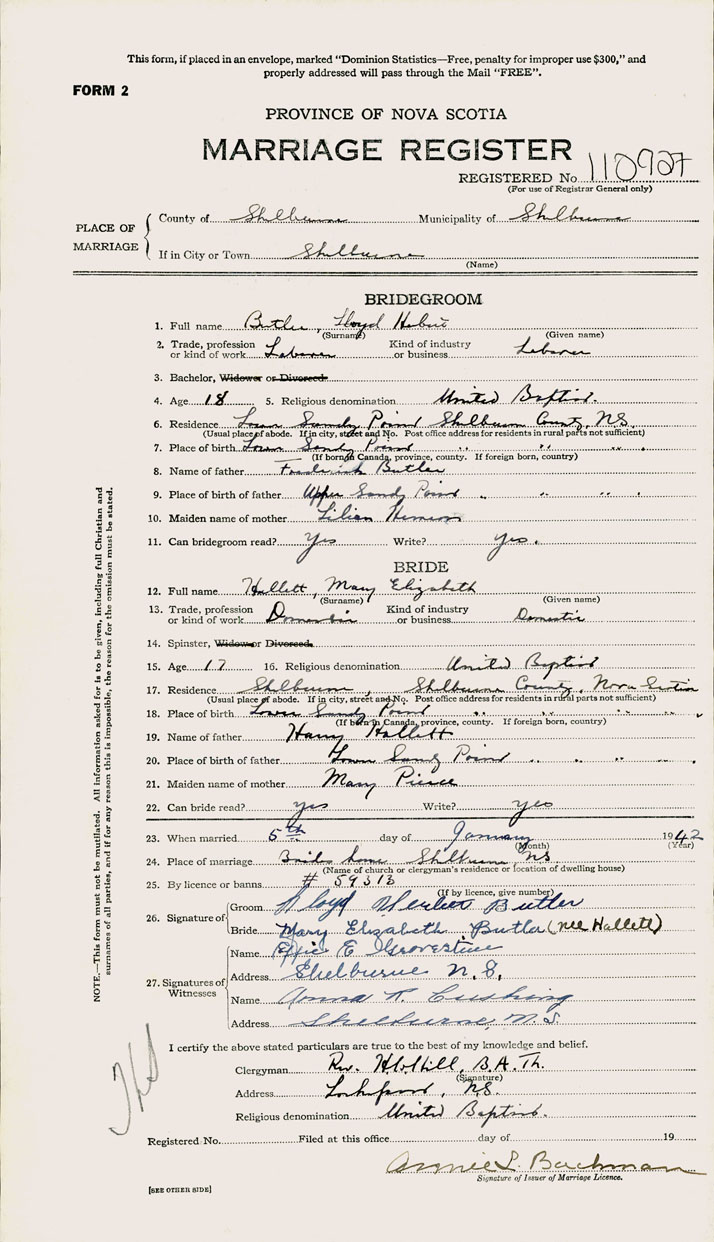 This form, if placed in an envelope, marked "Dominion Statistics—Free, penalty for improper use $300," and
properly addressed will pass through the Mail "FREE".
FORM 2
PROVINCE OF NOVA SCOTIA
MARRIAGE REGISTER
REGISTERED No. 110927
(For use of Registrar General only)
PLACE OF MARRIAGE
County of Shelburne Municipality of Shelburne
If in City or Town Shelburne
(Name)
BRIDEGROOM
1. Full name Butler, Lloyd Hebert
(Surname) (Given name)
2. Trade, profession or kind of work Laborer Kind of industry or business Laborer
3. Bachelor, Widower or Divorced.
4. Age 18 5. Religious denomination United Baptist.
6. Residence Lower Sandy Point Shelburne County, N.S.
(Usual place of abode. If in city, street and No. Post office address for residents in rural parts not sufficient)
7. Place of birth Lower Sandy Point " " " .
(If born in Canada, province, county. If foreign born, country)
8. Name of father Frederick Butler
9. Place of birth of father Upper Sandy Point " " "
10. Maiden name of mother Lilian
11. Can bridegroom read? Yes Write? Yes.
BRIDE
12. Full name Hallett, Mary Elizabeth
(Surname) (Given name)
13. Trade, profession or kind of work Domestic Kind of industry or business Domestic
14. Spinster, Widow or Divorced.
15. Age 17 16. Religious denomination United Baptist
17. Residence Shelburne, Shelburne County, Nova Scotia
(Usual place of abode. If in city, street and No. Post office address for residents in rural parts not sufficient)
18. Place of birth Lower Sandy Point " " " "
(If born in Canada, province, county. If foreign born, country)
19. Name of father Harry Hallett
20. Place of birth of father Lower Sandy Point " " " .
21. Maiden name of mother Mary Pierce
22. Can bride read? yes Write? yes
23. When married 5th day of January 1942
(Month) (Year)
24. Place of marriage Brides home Shelburne, NS
(Name of church or clergyman's residence or location of dwelling house)
25. By licence or banns # 59313
(If by licence, give number)
26. Signature of
Groom Lloyd Herbert Butler
Bride Mary Elizabeth Butler (nee Hallett)
27. Signatures of Witnesses
Name Effie E Grovestine
Address Shelburne N.S.
Name Anna R. Cushing
Address Shelburne, N.S.
I certify the above stated particulars are true to the best of my knowledge and belief.
Clergyman Rev. B.A. Th.
(Signature)
Address Lockeport, N.S.
Religious denomination United Baptist.
Registered No. Filed at this office day of 19
Annie L. Bachman
Signature of Issuer of Marriage Licence.
[SEE OTHER SIDE]
NOTE.—This form must not be mutilated. All information asked for is to be given, including full Christian and
surnames of all parties, and if for any reason this is impossible, the reason for the omission must be stated.